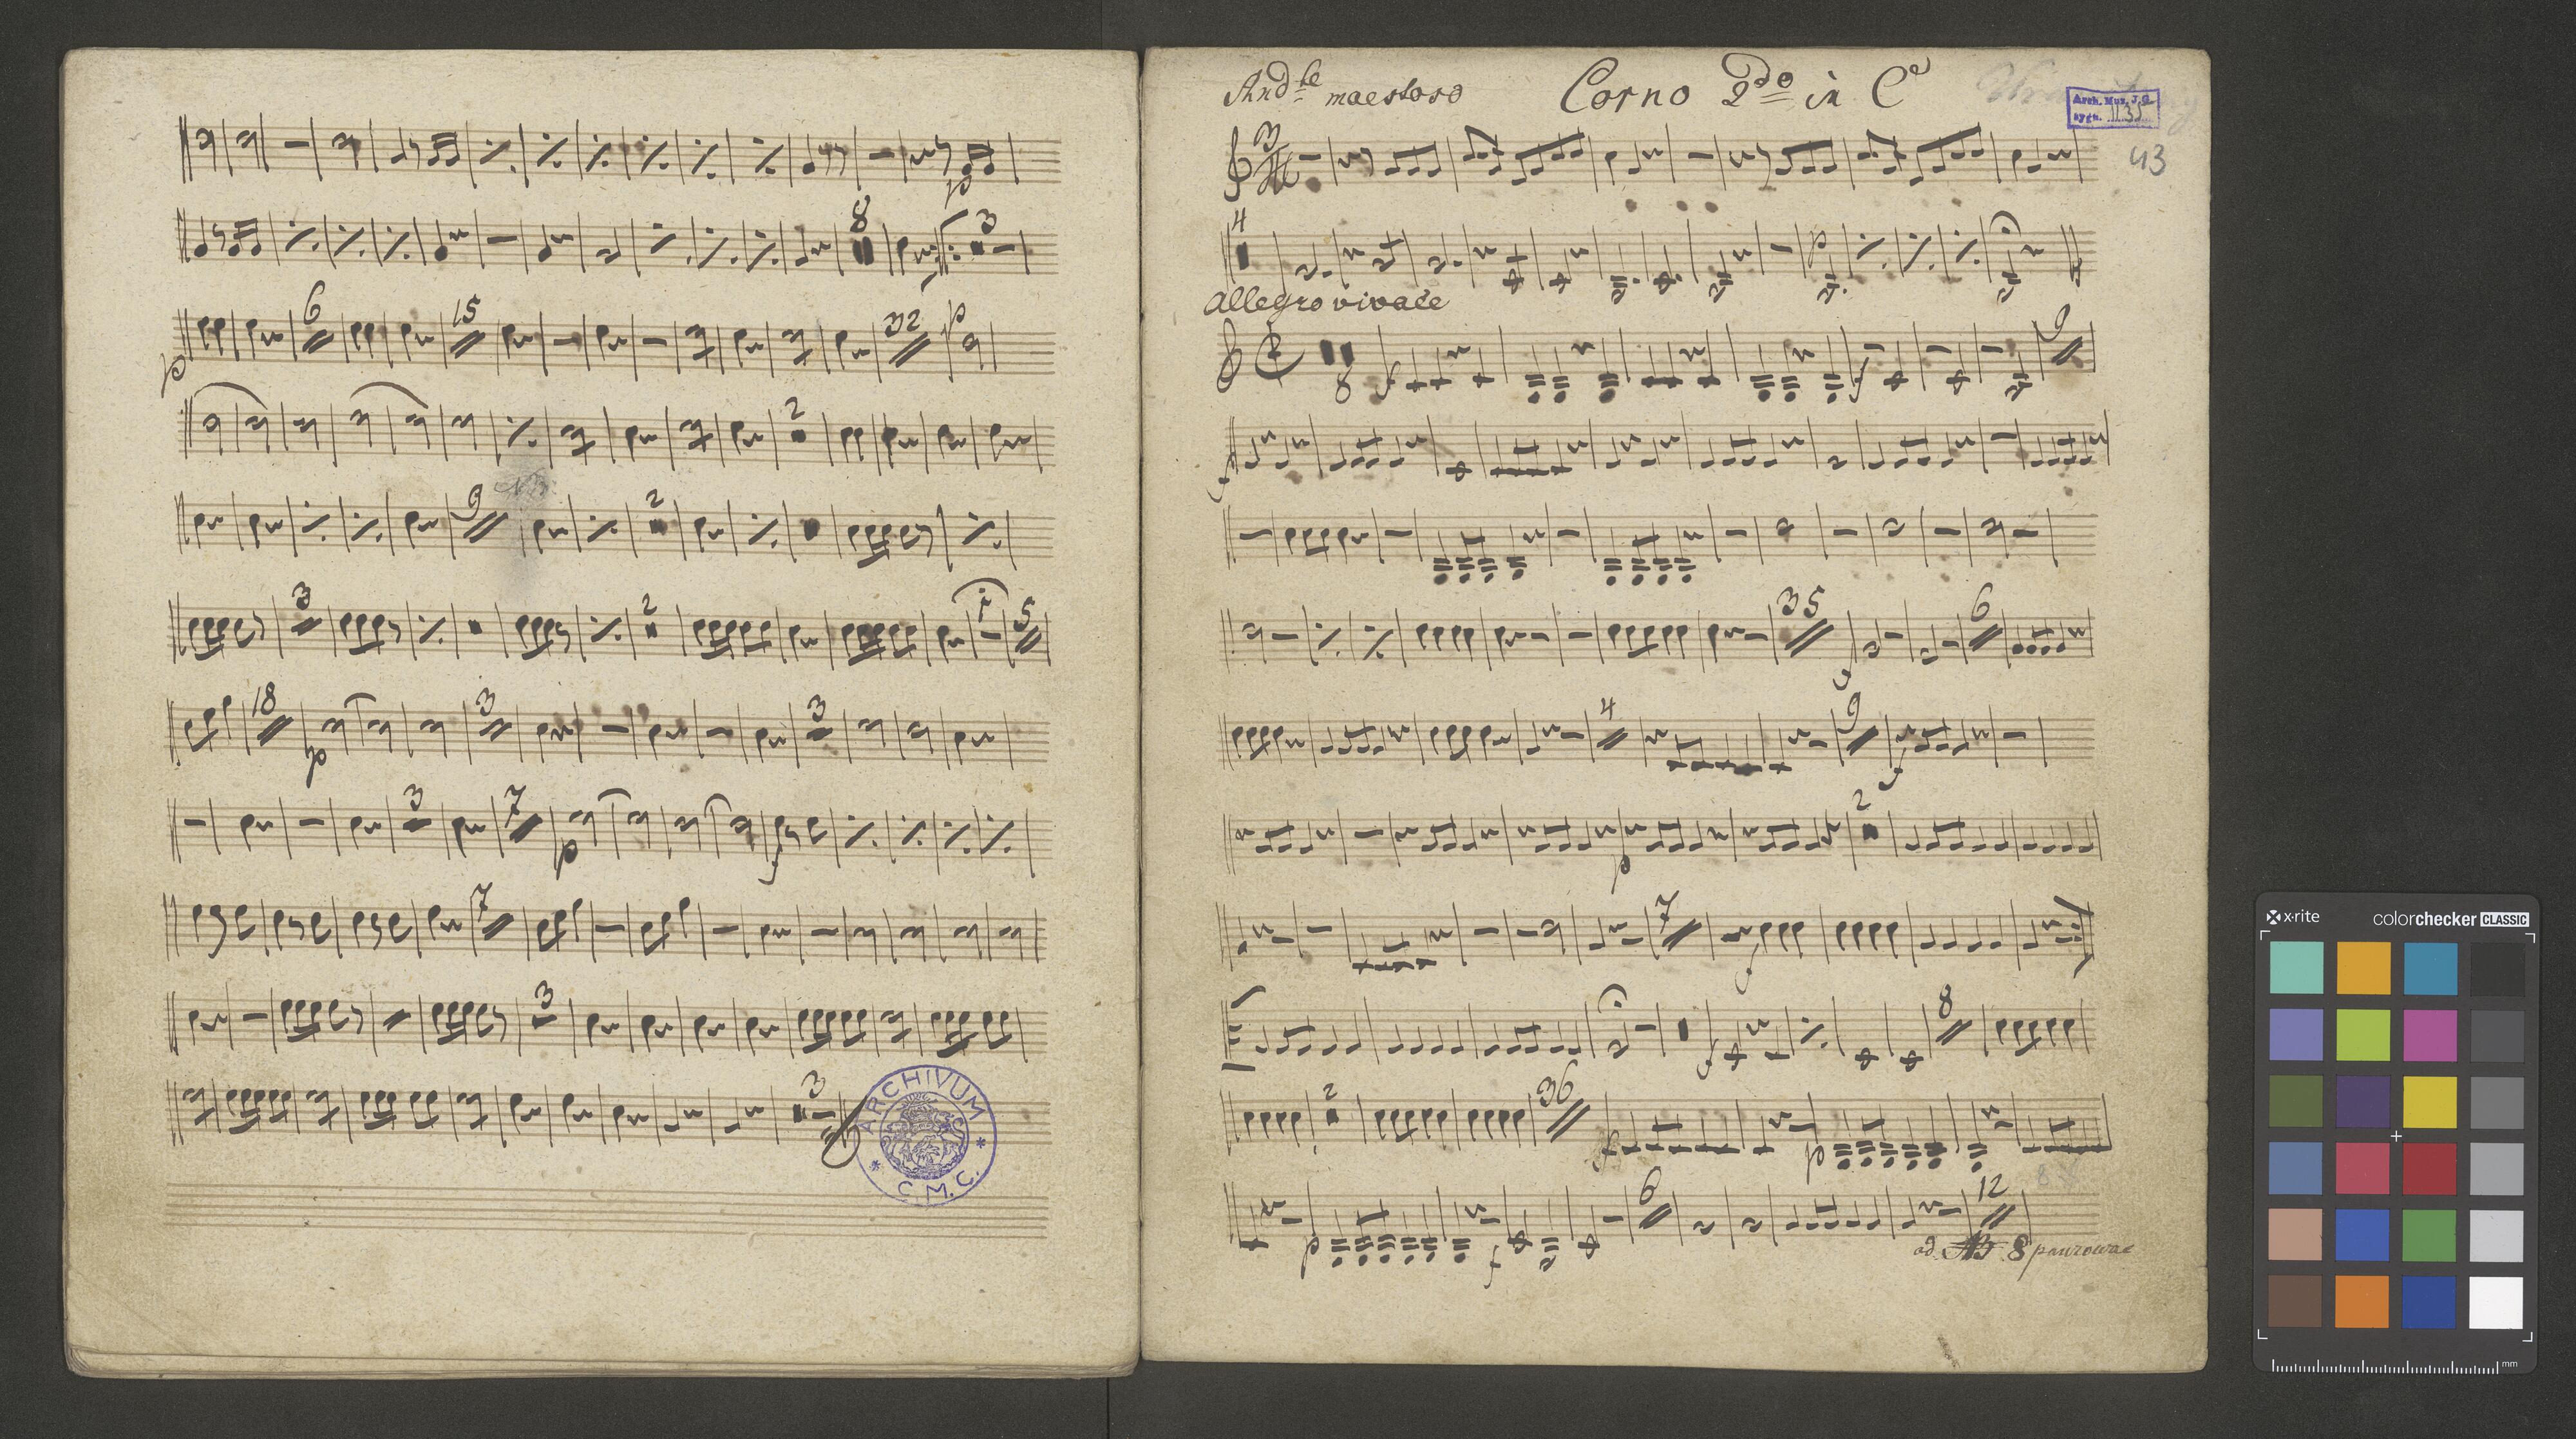 p
8
3
6
15
32
p
p
2
9
2
3
2
1
5
18
3
3
p
3
7
p
f
7
3
3
ARCHIVUM
C.M.C.
Andte maestoso
Corno 2do in C
Arch. Muz. J. G.
sygn.
43
3
4
p
Allegro vivace
8
f
f
9
f
35
6
f
4
9
f
p
2
7
f
8
f
2
36
f
p
8
p
f
6
12
od 8 pauzowac
x-rite
colorchecker CLASSIC
mm